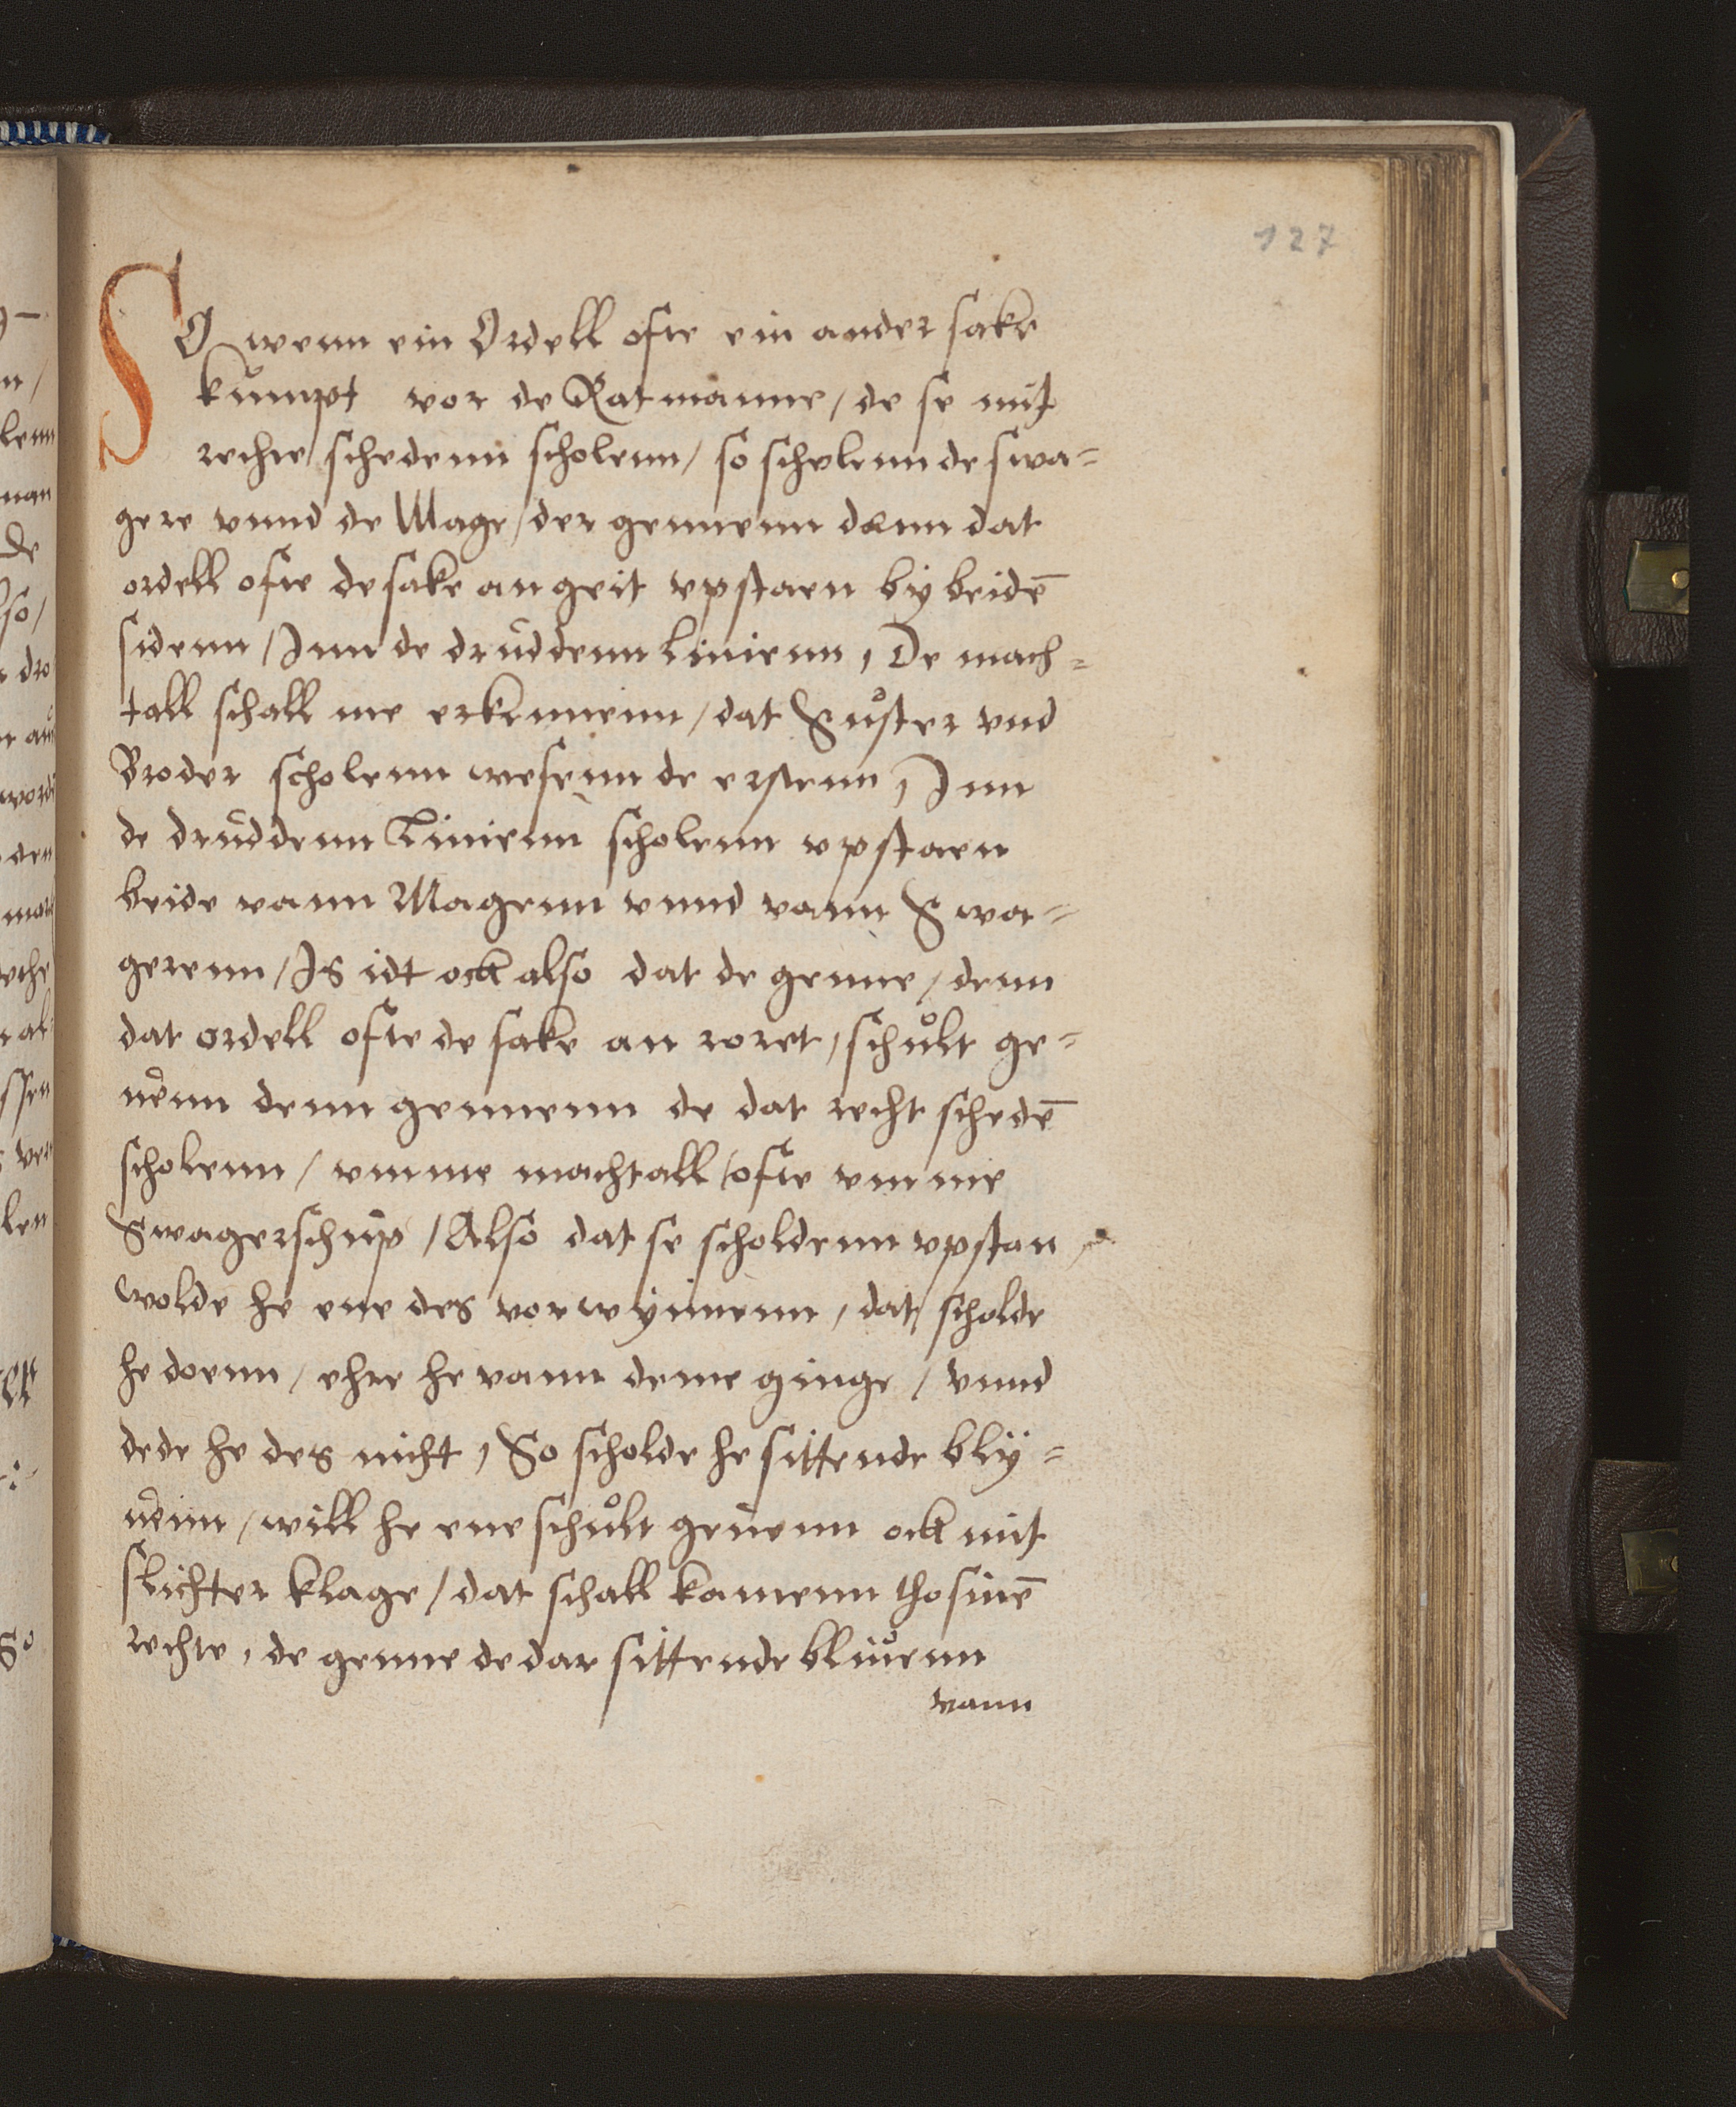 127
SO wenn ein Ordell ofte ein ander sake
kumpt vor de Ratmanne / de se mit
rechte schedenn scholenn / so scholenn de swa=
gere vnnd de Mage / der gennenn denn dat
ordell ofte de sake an geit vpstaen by beidē
sidenn / Inn de druddenn Linienn, De mach=
tall schall me erkennenn / dat Suster vnd
Broder scholenn wesenn de erstenn, Inn
de druddenn Linienn scholenn vpstaen
beide vann Magenn vnnd vann Swa=
gerenn / Is idt ock also dat de genne / denn
dat ordell ofte de sake an roret, schult ge=
uenn denn gennenn de dat recht schedē
scholenn / vmme machtall / ofte vmme
Swagerschup / Also dat se scholdenn vpstan
wolde he ene des vorwynnenn, dat scholde
he doenn / ehre he vann deme ginge / vnnd
dede he des nicht, So scholde he sittende bly=
uenn / will he ene schult geuenn ock mit
slichter klage / dat schall kamenn tho sinē
rechte, de genne de dar sittende bliuenn
vann